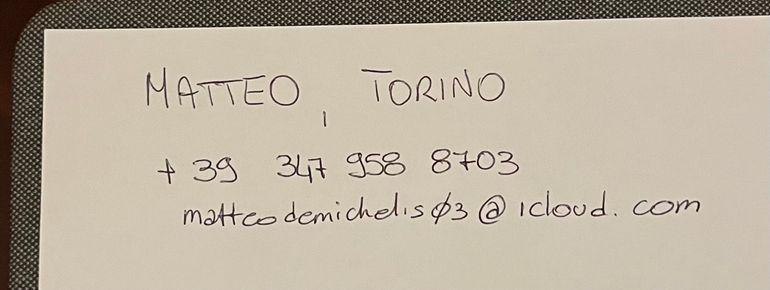 MATTEO, TORINO
+39 347 958 8703
matteodemichelis03@icloud.com